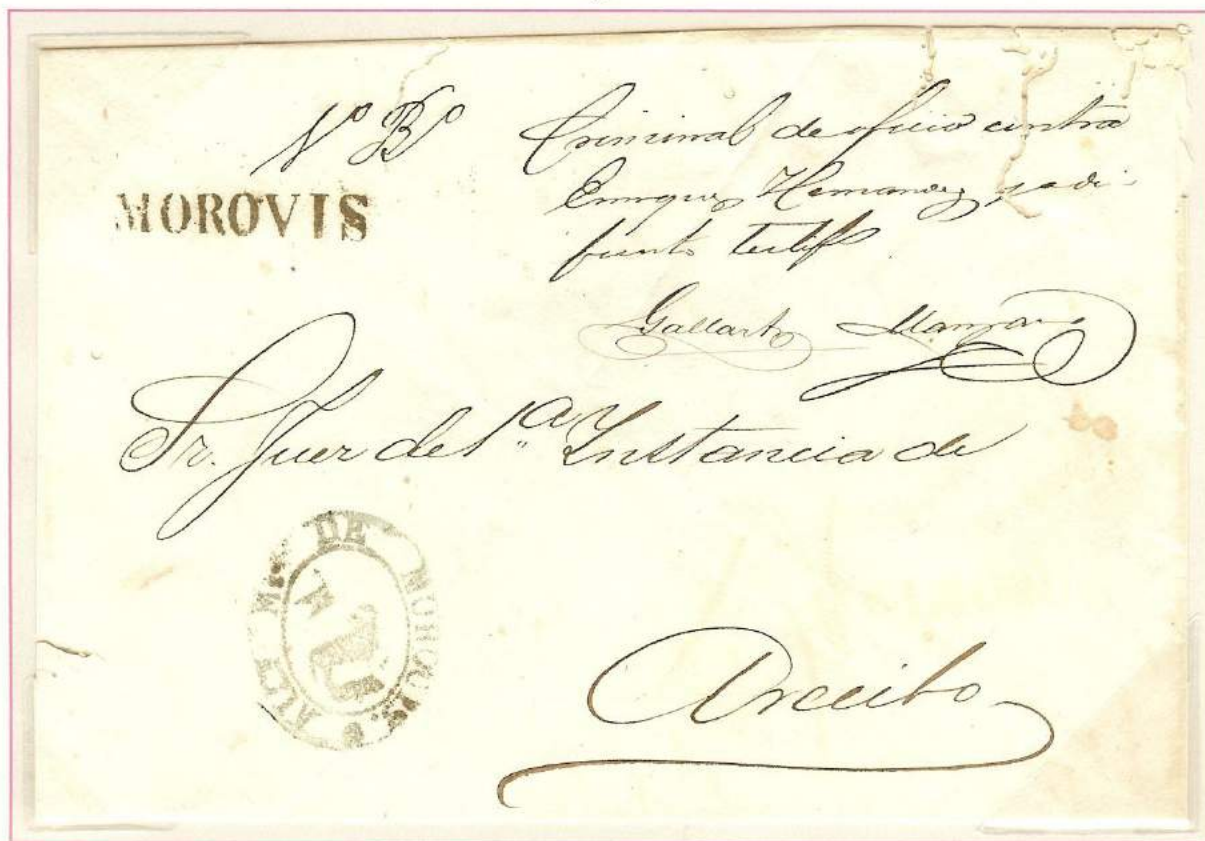 Vº Bº
MOROVIS
Criminal de oficio contra
Enrique Hernandez, por
Gallart Manzano
Sr. Juez de 1ª Instancia de
ALC Mr. DE MOROVIS.
Arecibo